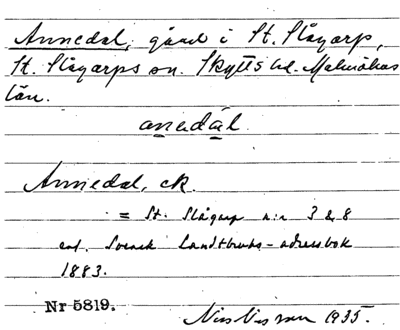 Annedal, gård i St. Slågarp,
St. Slågarps sn. Skytts hd. Malmöhus
län.
anedál
Annedal, ek.
= St. Slågarp n:r 3 & 8
enl. Svensk Landtbruks-adressbok
1883.
Nr 5819.
Nils Nilsson 1935.